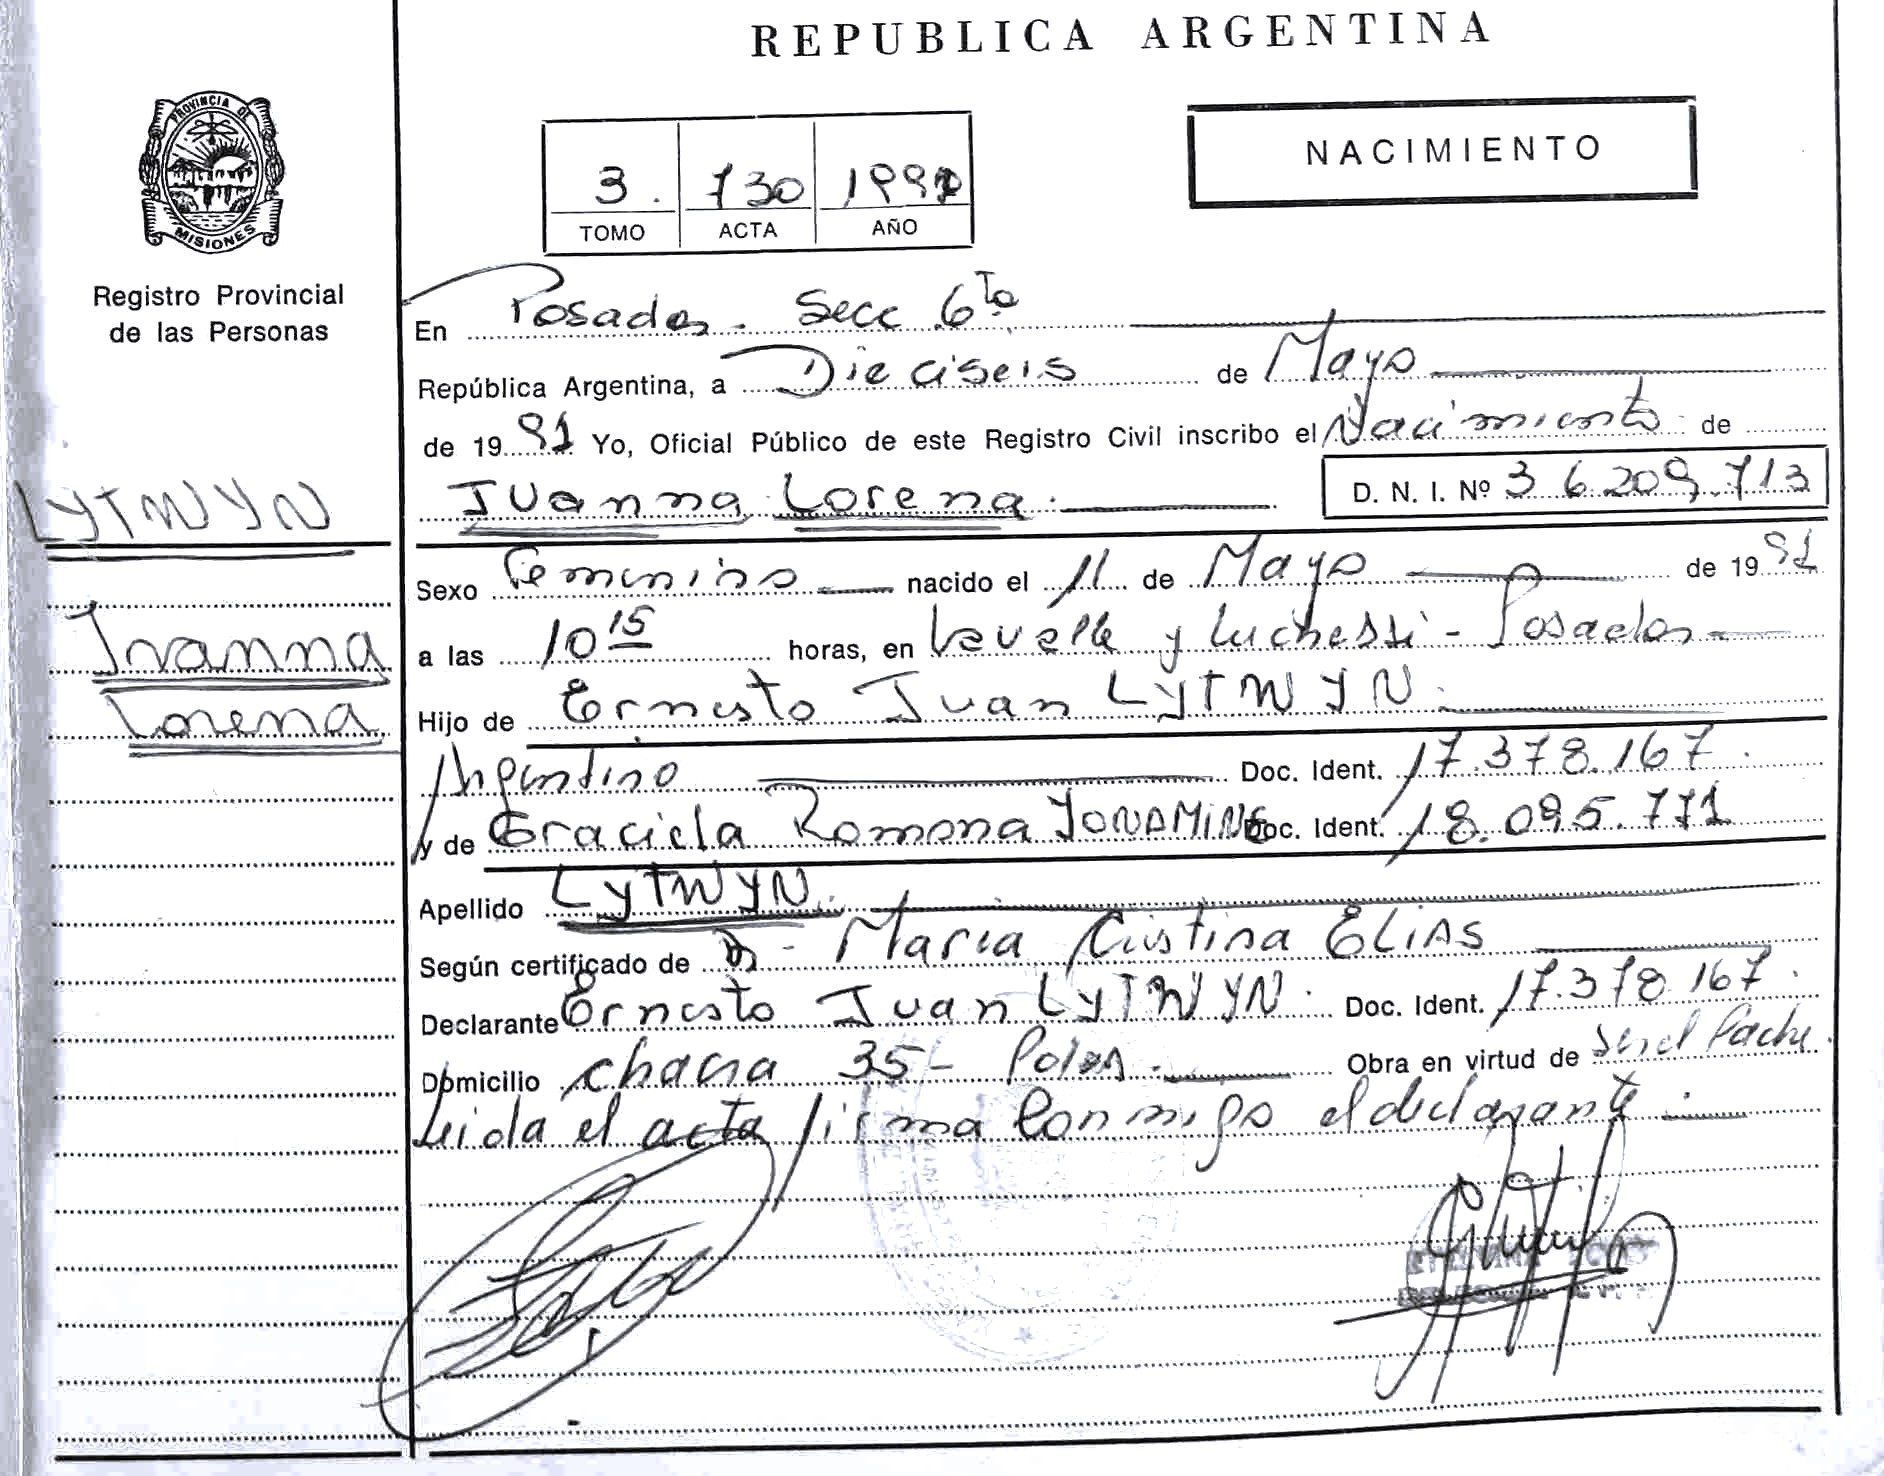 REPUBLICA ARGENTINA
PROVINCIA DE
MISIONES
Registro Provincial
de las Personas
NACIMIENTO
3. 730 1991
TOMO ACTA AÑO
En Posadas - Secc 6ta
República Argentina, a Dieciseis de Mayo
de 19 91 Yo, Oficial Público de este Registro Civil inscribo el Nacimiento de
Ivanna Lorena. D. N. I. Nº 36.209.713
LYTWYN
Ivanna
Lorena
Sexo Femenino nacido el 11 de Mayo de 19 91
a las 10 15 horas, en y Luchessi - Posadas
Hijo de Ernesto Juan LYTWYN.
Argentino Doc. Ident. 17.378.167.
y de Graciela Ramona YONAMINE Doc. Ident. 18.095.771
Apellido LYTWYN.
Según certificado de - María Cristina ELIAS
Declarante Ernesto Juan LYTWYN. Doc. Ident. 17.378.167.
Domicilio chacra 35 - Pdas. Obra en virtud de Ser el Padre.
Leida el acta firma conmigo el declarante.